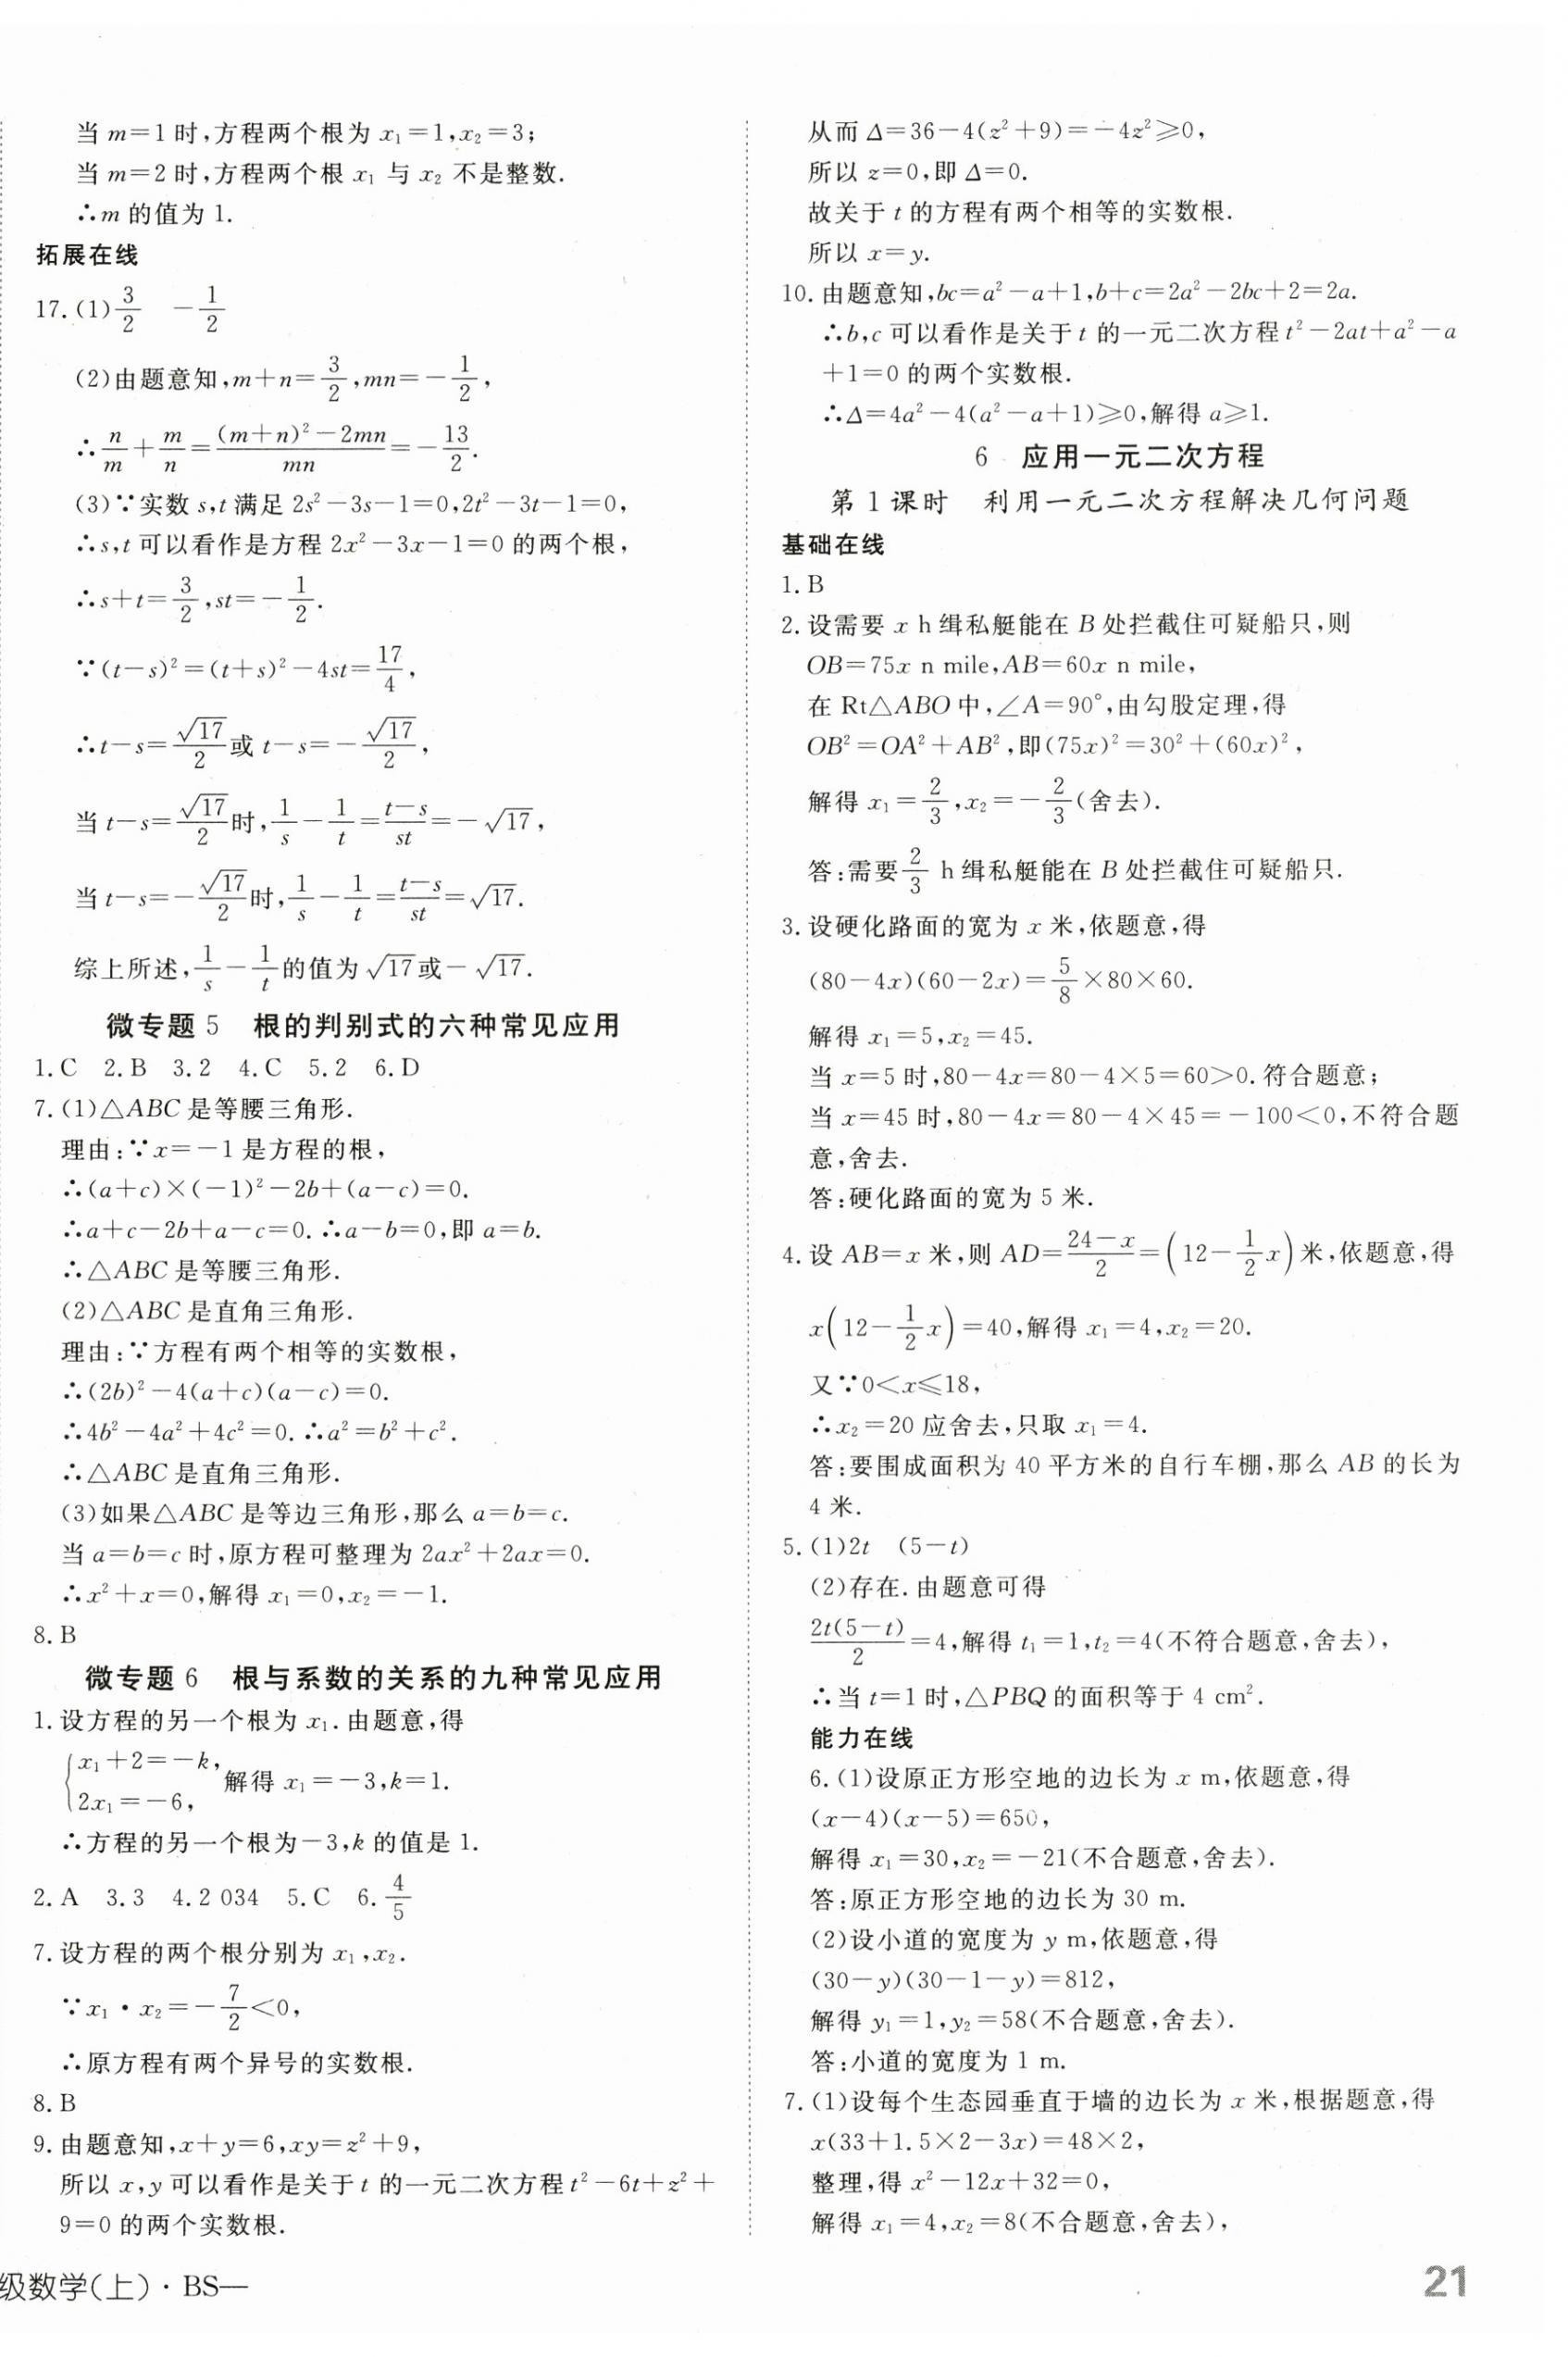 当 m=1 时,方程两个根为 x₁=1,x₂=3;
当 m=2 时,方程两个根 x₁ 与 x₂ 不是整数.
∴m 的值为 1.
拓展在线
17.(1)3/2 -1/2
(2)由题意知,m+n=3/2,mn=-1/2,
∴n/m+m/n=((m+n)²-2mn)/mn=-13/2.
(3)∵实数 s,t 满足 2s²-3s-1=0,2t²-3t-1=0,
∴s,t 可以看作是方程 2x²-3x-1=0 的两个根,
∴s+t=3/2,st=-1/2.
∵(t-s)²=(t+s)²-4st=17/4,
∴t-s=√17/2或 t-s=-√17/2,
当 t-s=√17/2时,1/s-1/t=(t-s)/st=-√17,
当 t-s=-√17/2时,1/s-1/t=(t-s)/st=√17.
综上所述,1/s-1/t的值为√17或-√17.
微专题 5 根的判别式的六种常见应用
1.C 2.B 3.2 4.C 5.2 6.D
7.(1)△ABC 是等腰三角形.
理由:∵x=-1 是方程的根,
∴(a+c)×(-1)²-2b+(a-c)=0.
∴a+c-2b+a-c=0.∴a-b=0,即 a=b.
∴△ABC 是等腰三角形.
(2)△ABC 是直角三角形.
理由:∵方程有两个相等的实数根,
∴(2b)²-4(a+c)(a-c)=0.
∴4b²-4a²+4c²=0.∴a²=b²+c².
∴△ABC 是直角三角形.
(3)如果△ABC 是等边三角形,那么 a=b=c.
当 a=b=c 时,原方程可整理为 2ax²+2ax=0.
∴x²+x=0,解得 x₁=0,x₂=-1.
8.B
微专题 6 根与系数的关系的九种常见应用
1.设方程的另一个根为 x₁.由题意,得
{x₁+2=-k,
2x₁=-6, 解得 x₁=-3,k=1.
∴方程的另一个根为-3,k 的值是 1.
2.A 3.3 4.2 034 5.C 6.4/5
7.设方程的两个根分别为 x₁,x₂.
∵x₁·x₂=-7/2<0,
∴原方程有两个异号的实数根.
8.B
9.由题意知,x+y=6,xy=z²+9,
所以 x,y 可以看作是关于 t 的一元二次方程 t²-6t+z²+
9=0 的两个实数根.
级数学(上)·BS—
从而 Δ=36-4(z²+9)=-4z²≥0,
所以 z=0,即 Δ=0.
故关于 t 的方程有两个相等的实数根.
所以 x=y.
10.由题意知,bc=a²-a+1,b+c=2a²-2bc+2=2a.
∴b,c 可以看作是关于 t 的一元二次方程 t²-2at+a²-a
+1=0 的两个实数根.
∴Δ=4a²-4(a²-a+1)≥0,解得 a≥1.
6 应用一元二次方程
第 1 课时 利用一元二次方程解决几何问题
基础在线
1.B
2.设需要 x h 缉私艇能在 B 处拦截住可疑船只,则
OB=75x n mile,AB=60x n mile,
在 Rt△ABO 中,∠A=90°,由勾股定理,得
OB²=OA²+AB²,即(75x)²=30²+(60x)²,
解得 x₁=2/3,x₂=-2/3(舍去).
答:需要2/3 h 缉私艇能在 B 处拦截住可疑船只.
3.设硬化路面的宽为 x 米,依题意,得
(80-4x)(60-2x)=5/8×80×60.
解得 x₁=5,x₂=45.
当 x=5 时,80-4x=80-4×5=60>0.符合题意;
当 x=45 时,80-4x=80-4×45=-100<0,不符合题
意,舍去.
答:硬化路面的宽为 5 米.
4.设 AB=x 米,则 AD=(24-x)/2=(12-1/2x)米,依题意,得
x(12-1/2x)=40,解得 x₁=4,x₂=20.
又∵0<x≤18,
∴x₂=20 应舍去,只取 x₁=4.
答:要围成面积为 40 平方米的自行车棚,那么 AB 的长为
4 米.
5.(1)2t (5-t)
(2)存在.由题意可得
2t(5-t)/2=4,解得 t₁=1,t₂=4(不符合题意,舍去),
∴当 t=1 时,△PBQ 的面积等于 4 cm².
能力在线
6.(1)设原正方形空地的边长为 x m,依题意,得
(x-4)(x-5)=650,
解得 x₁=30,x₂=-21(不合题意,舍去).
答:原正方形空地的边长为 30 m.
(2)设小道的宽度为 y m,依题意,得
(30-y)(30-1-y)=812,
解得 y₁=1,y₂=58(不合题意,舍去).
答:小道的宽度为 1 m.
7.(1)设每个生态园垂直于墙的边长为 x 米,根据题意,得
x(33+1.5×2-3x)=48×2,
整理,得 x²-12x+32=0,
解得 x₁=4,x₂=8(不合题意,舍去),
21